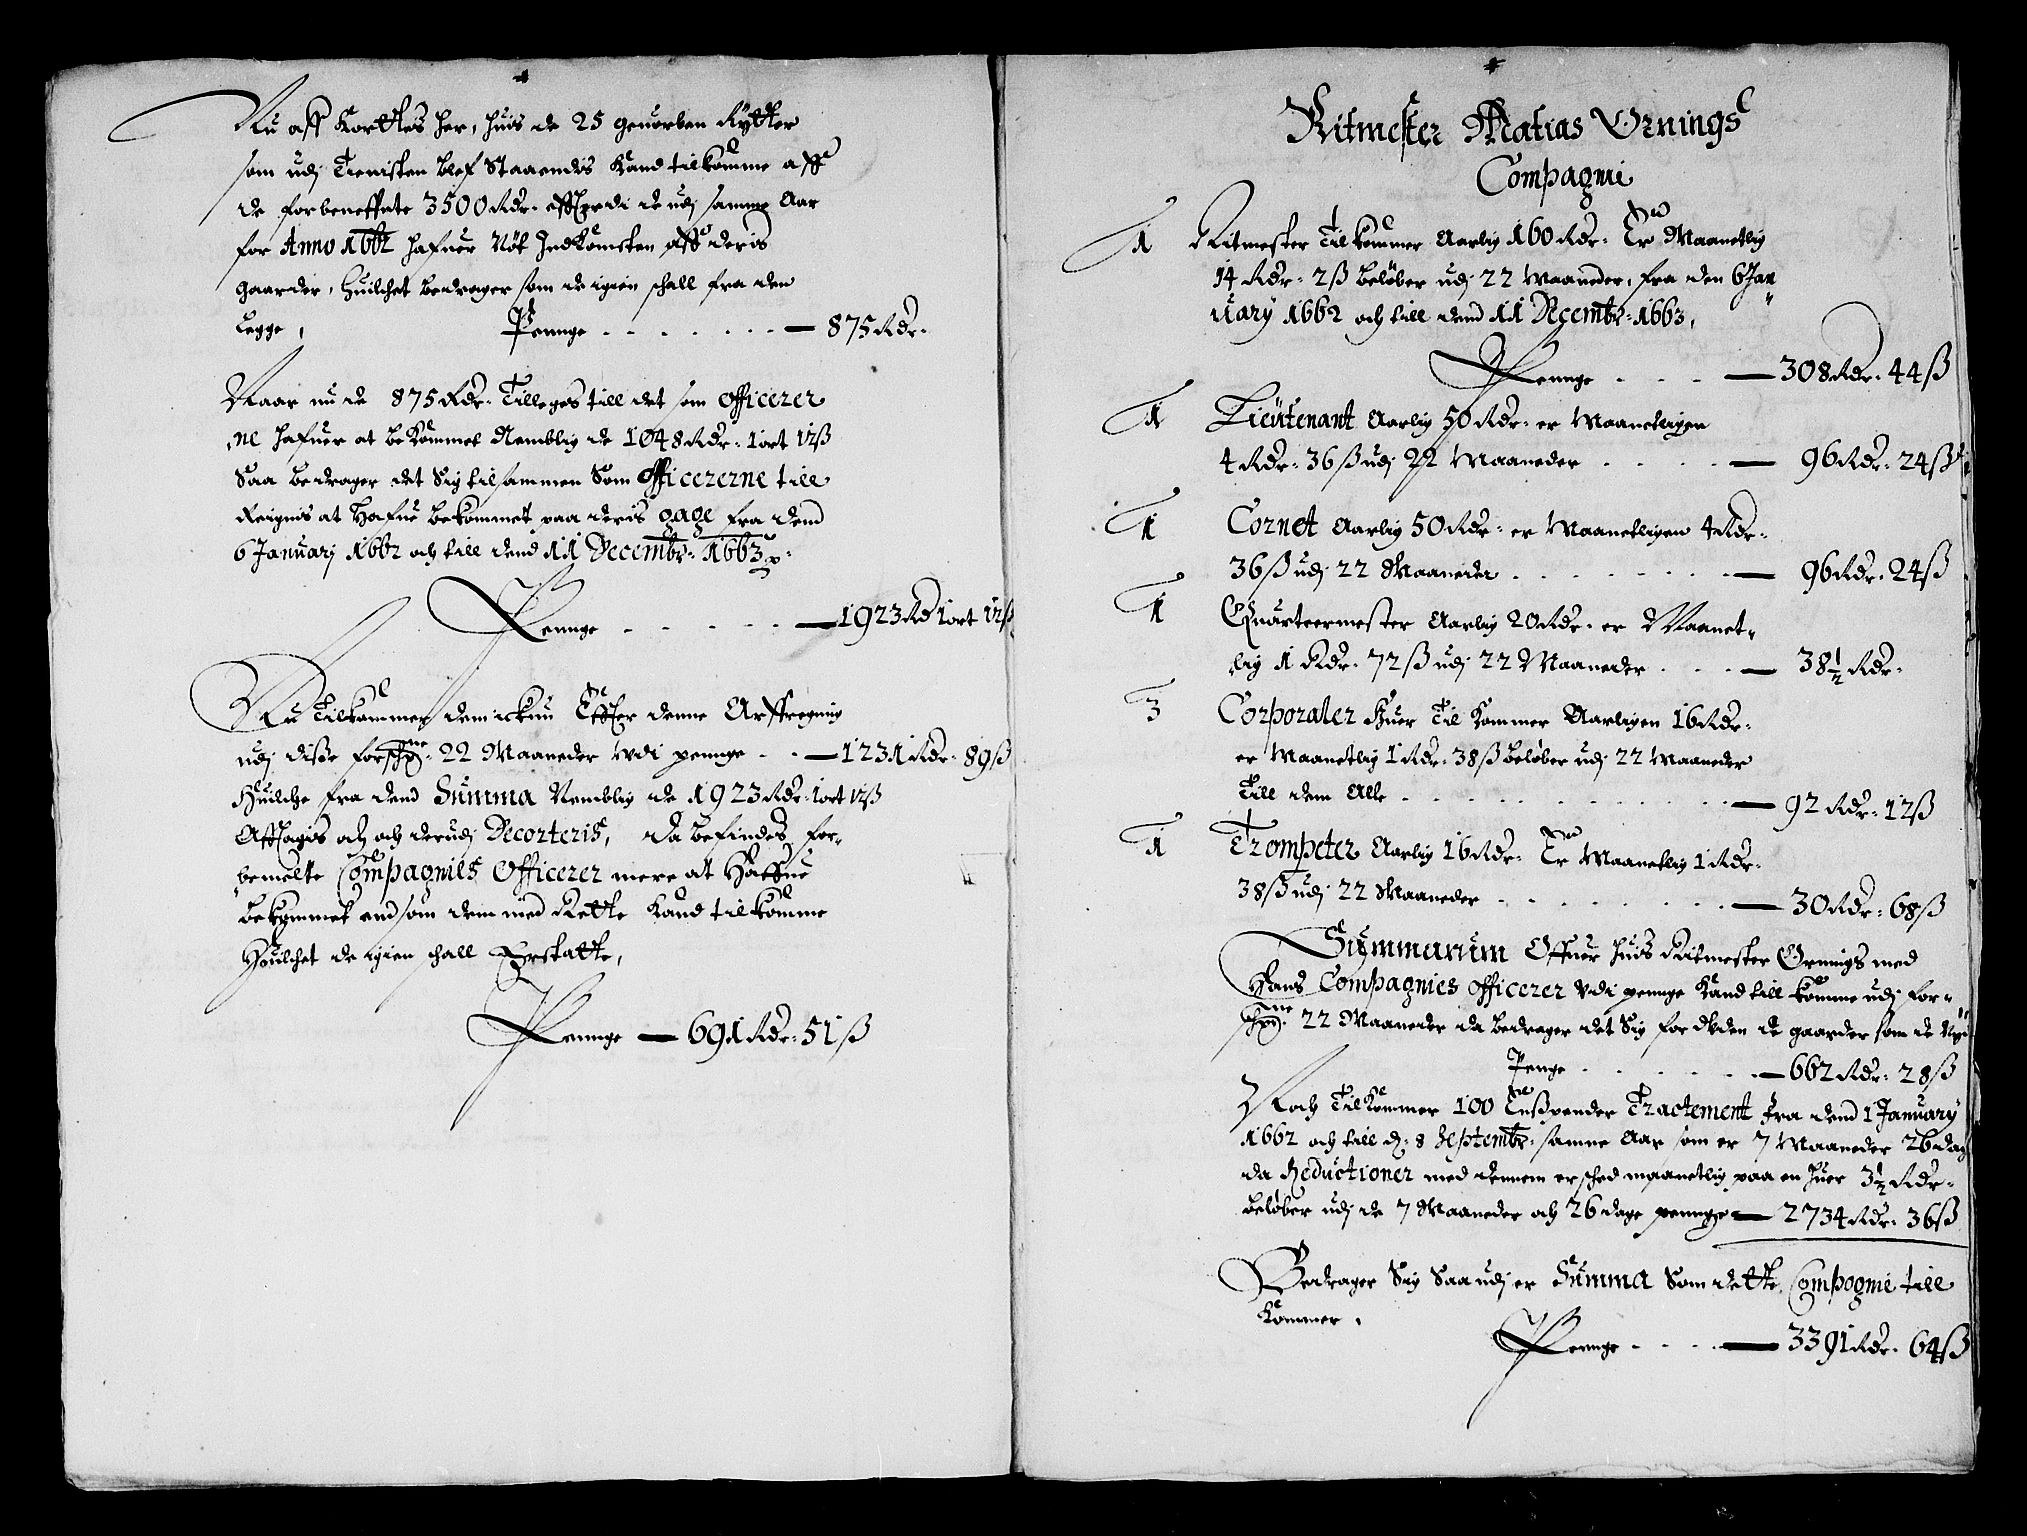 Nu aff Korttes her, huis de 25 geuorben Rytter
som udj Tienisten blef Staaendis Kand tilkomme aff
de forbeneffnte 3500 Rdr. effterdi de udj samme Aar
for Anno 1662 hafuer Nöt Indkomsten aff deris
gaarder, huilchet bedrager som de igien schall fra den
Legge, Pennge - - - - - - - 875 Rdr.
Naar nu de 875 Rdr. Tilleges till det som officerer
ne hafuer at bekommet Nemblig de 1048 Rdr. 1 ort 12ß
Saa bedrager det Sig tilsammen Som officererne till
Reignis at Hafue bekommet paa deris gage fra dend
6 Januarj 1662 och till dend 11 Decembr. 1663
Pennge - - - - - - 1923 Rd 1 ort 12ß
Nu Tilkommer dem ickun Effter denne Affregning
udj diße forschne. 22 Maaneder vdi pennge - - 1231 Rdr. 89ß
Huilche fra dend Summa Nemblig de 1923 Rdr. 1 ort 12ß
Afftagis och derudj Decorteris, da befindes for-
bemelte Compagnies Officerer mere at Haffue
bekommet end som dem med Rette Kand tilkomme
Huilchet de igien schall Erstatte,
Pennge — 691 Rdr. 51ß
Ritmester Matias Ornings
Compagnie
1 Ritmester Tilkommer Aarlig 160 Rdr. Er Maanetlig
14 Rdr. 2ß beløber udj 22 Maaneder, fra den 6 Jan
uary 1662 och till dend 11 Decembr. 1663,
Pennge - - - - 308 Rdr. 44ß
1 Lieutenant Aarlig 50 Rdr. er Maanetligen
4 Rdr. 36ß udj 22 Maaneder - - - - 96 Rdr. 24ß
1 Cornet Aarlig 50 Rdr. er Maanetligen 4 Rdr.
36ß udj 22 Maaneder - - - - - - - 96 Rdr. 24ß
1 Quarteermester Aarlig 20 Rdr. er Maanet-
lig 1 Rdr. 72ß udj 22 Maaneder - - - 38½ Rdr.
3 Corporaler Huer Til Kommer Aarligen 16 Rdr.
er Maanetlig 1 Rdr. 38ß beløber udj 22 Maaneder
Till dem Alle - - - - - - - - - - 92 Rdr. 12ß
1 Trompeter Aarlig 16 Rdr. Er Maanetlig 1 Rdr.
38ß udj 22 Maaneder - - - - - - - 30 Rdr. 68ß
Summarum Offuer huis Ritmester Ornings med
Hans Compagnies officerer vdi pennge Kand till komme udj for-
schne. 22 Maaneder da bedrager det Sig for uden de gaarder som de
Penge - - - - - - 662 Rdr. 28ß
Noch Tilkommer 100 Enßpender Tractement fra dend 1 January
1662 och till d. 8 Septembr. samme Aar som er 7 Maaneder 26 dag
da Reductioner med dennem er sched maanetlig paa en huer 3½ Rdr.
beløber udj de 7 Maaneder och 26 dage pennge — 2734 Rdr. 36ß
Bedrager Sig Saa udj er Summa Som dette Compagnie till
Kommer,
Pennge - - - - 3391 Rdr. 64ß